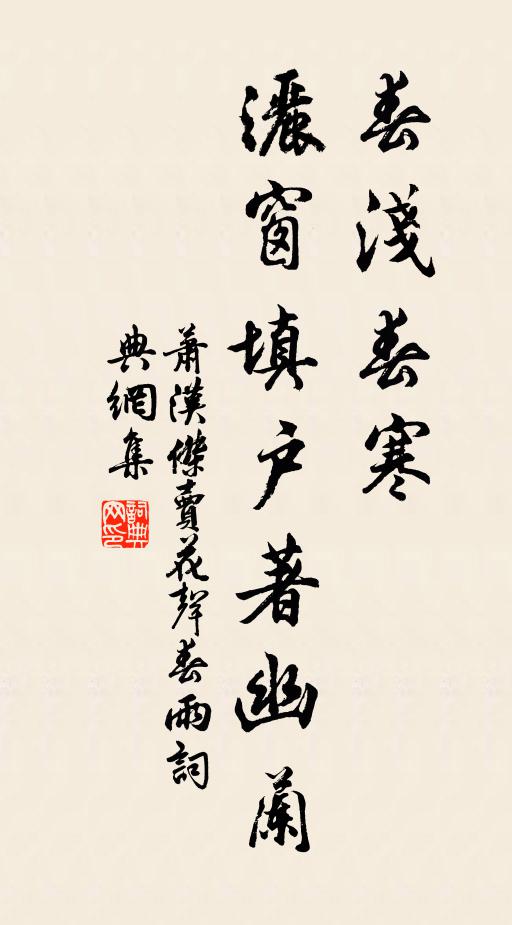 春淺春寒
灑窗填戶著幽蘭
蕭漢傑賣花聲春雨詞
典網集
詞典网印